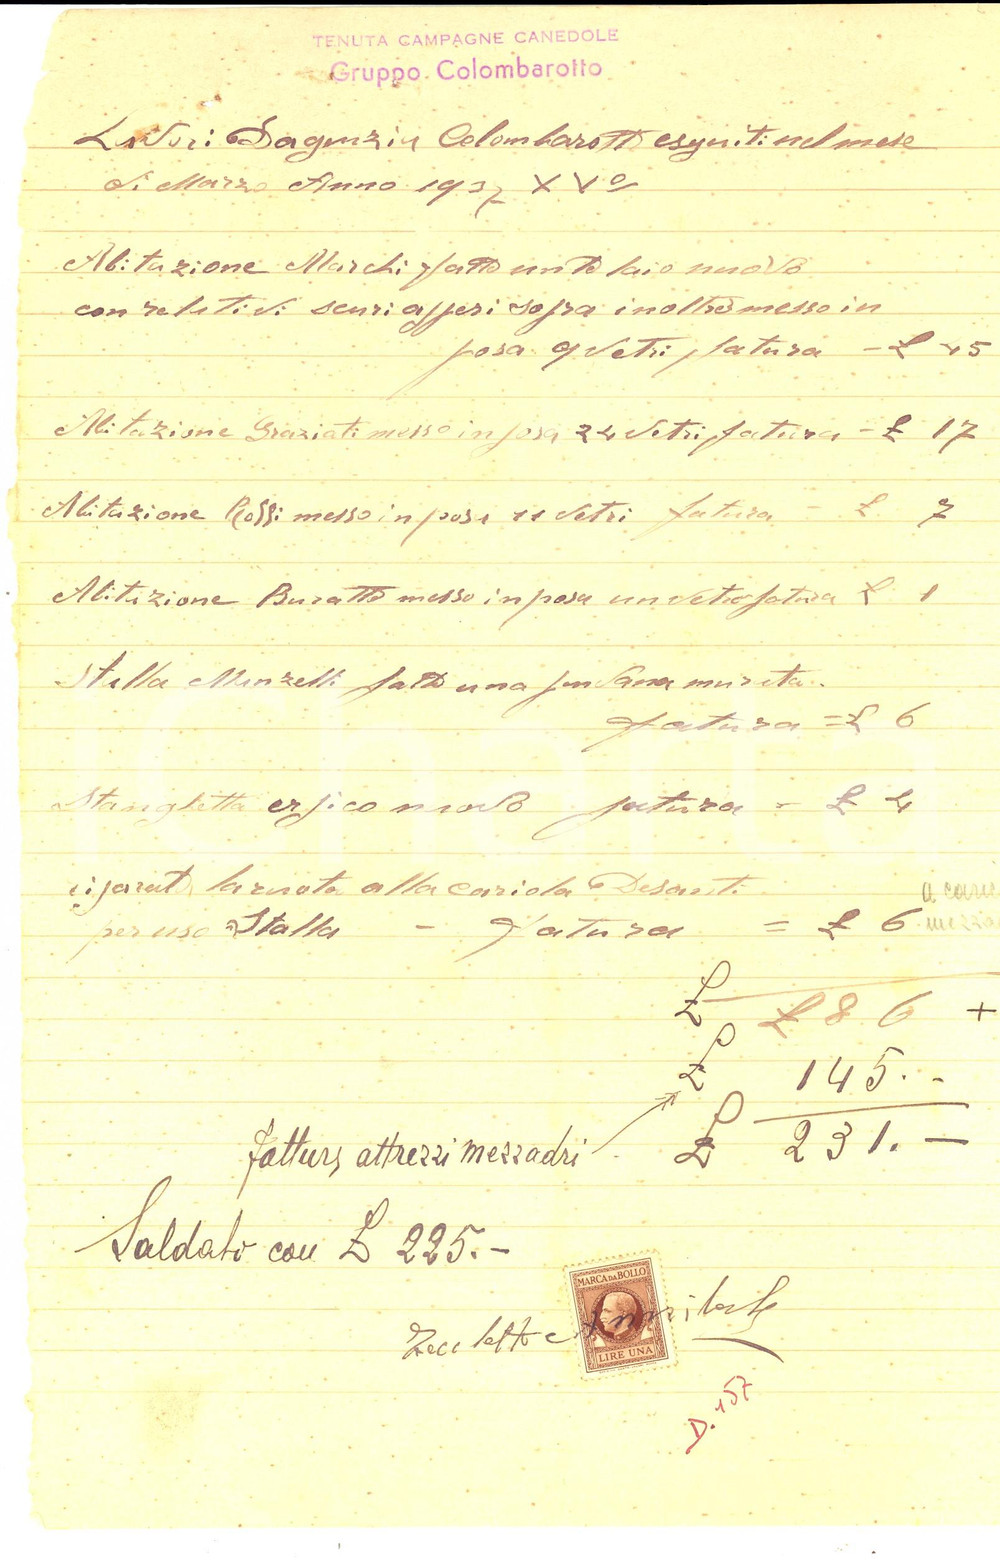 TENUTA CAMPAGNE CANEDOLE
Gruppo Colombarotto
Lavori Dagenzia Colombarotto eseguiti nel mese
di Marzo Anno 1937 XVº
Abitazione Marchi fatto un telaio nuovo
con relativi scuri apperi sopra inoltre messo in
posa 9 vetri fatura - £ 45
Abitazione Graziati messo in posa 24 vetri fatura - £ 17
Abitazione Rossi messo in posa 11 vetri fatura - £ 7
Abitazione Buratto messo in posa un vetro fatura £ 1
Stalla Menzelli fatto una fondana mureta.
fatura = £ 6
Stanghetta erpico nuovo fatura = £ 4
riparato la ruota alla cariola Desanti
per uso Stalla - fatura = £ 6
a caric
mezza
£ £ 86 +
£ 145. -
fatture attrezzi mezzadri £ 231. -
Saldato con £ 225. -
MARCA DA BOLLO
LIRE UNA
D. 157